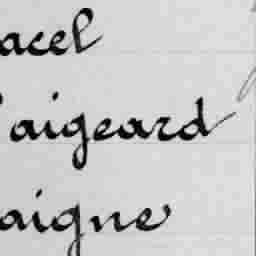 acel
aigeard
aigne